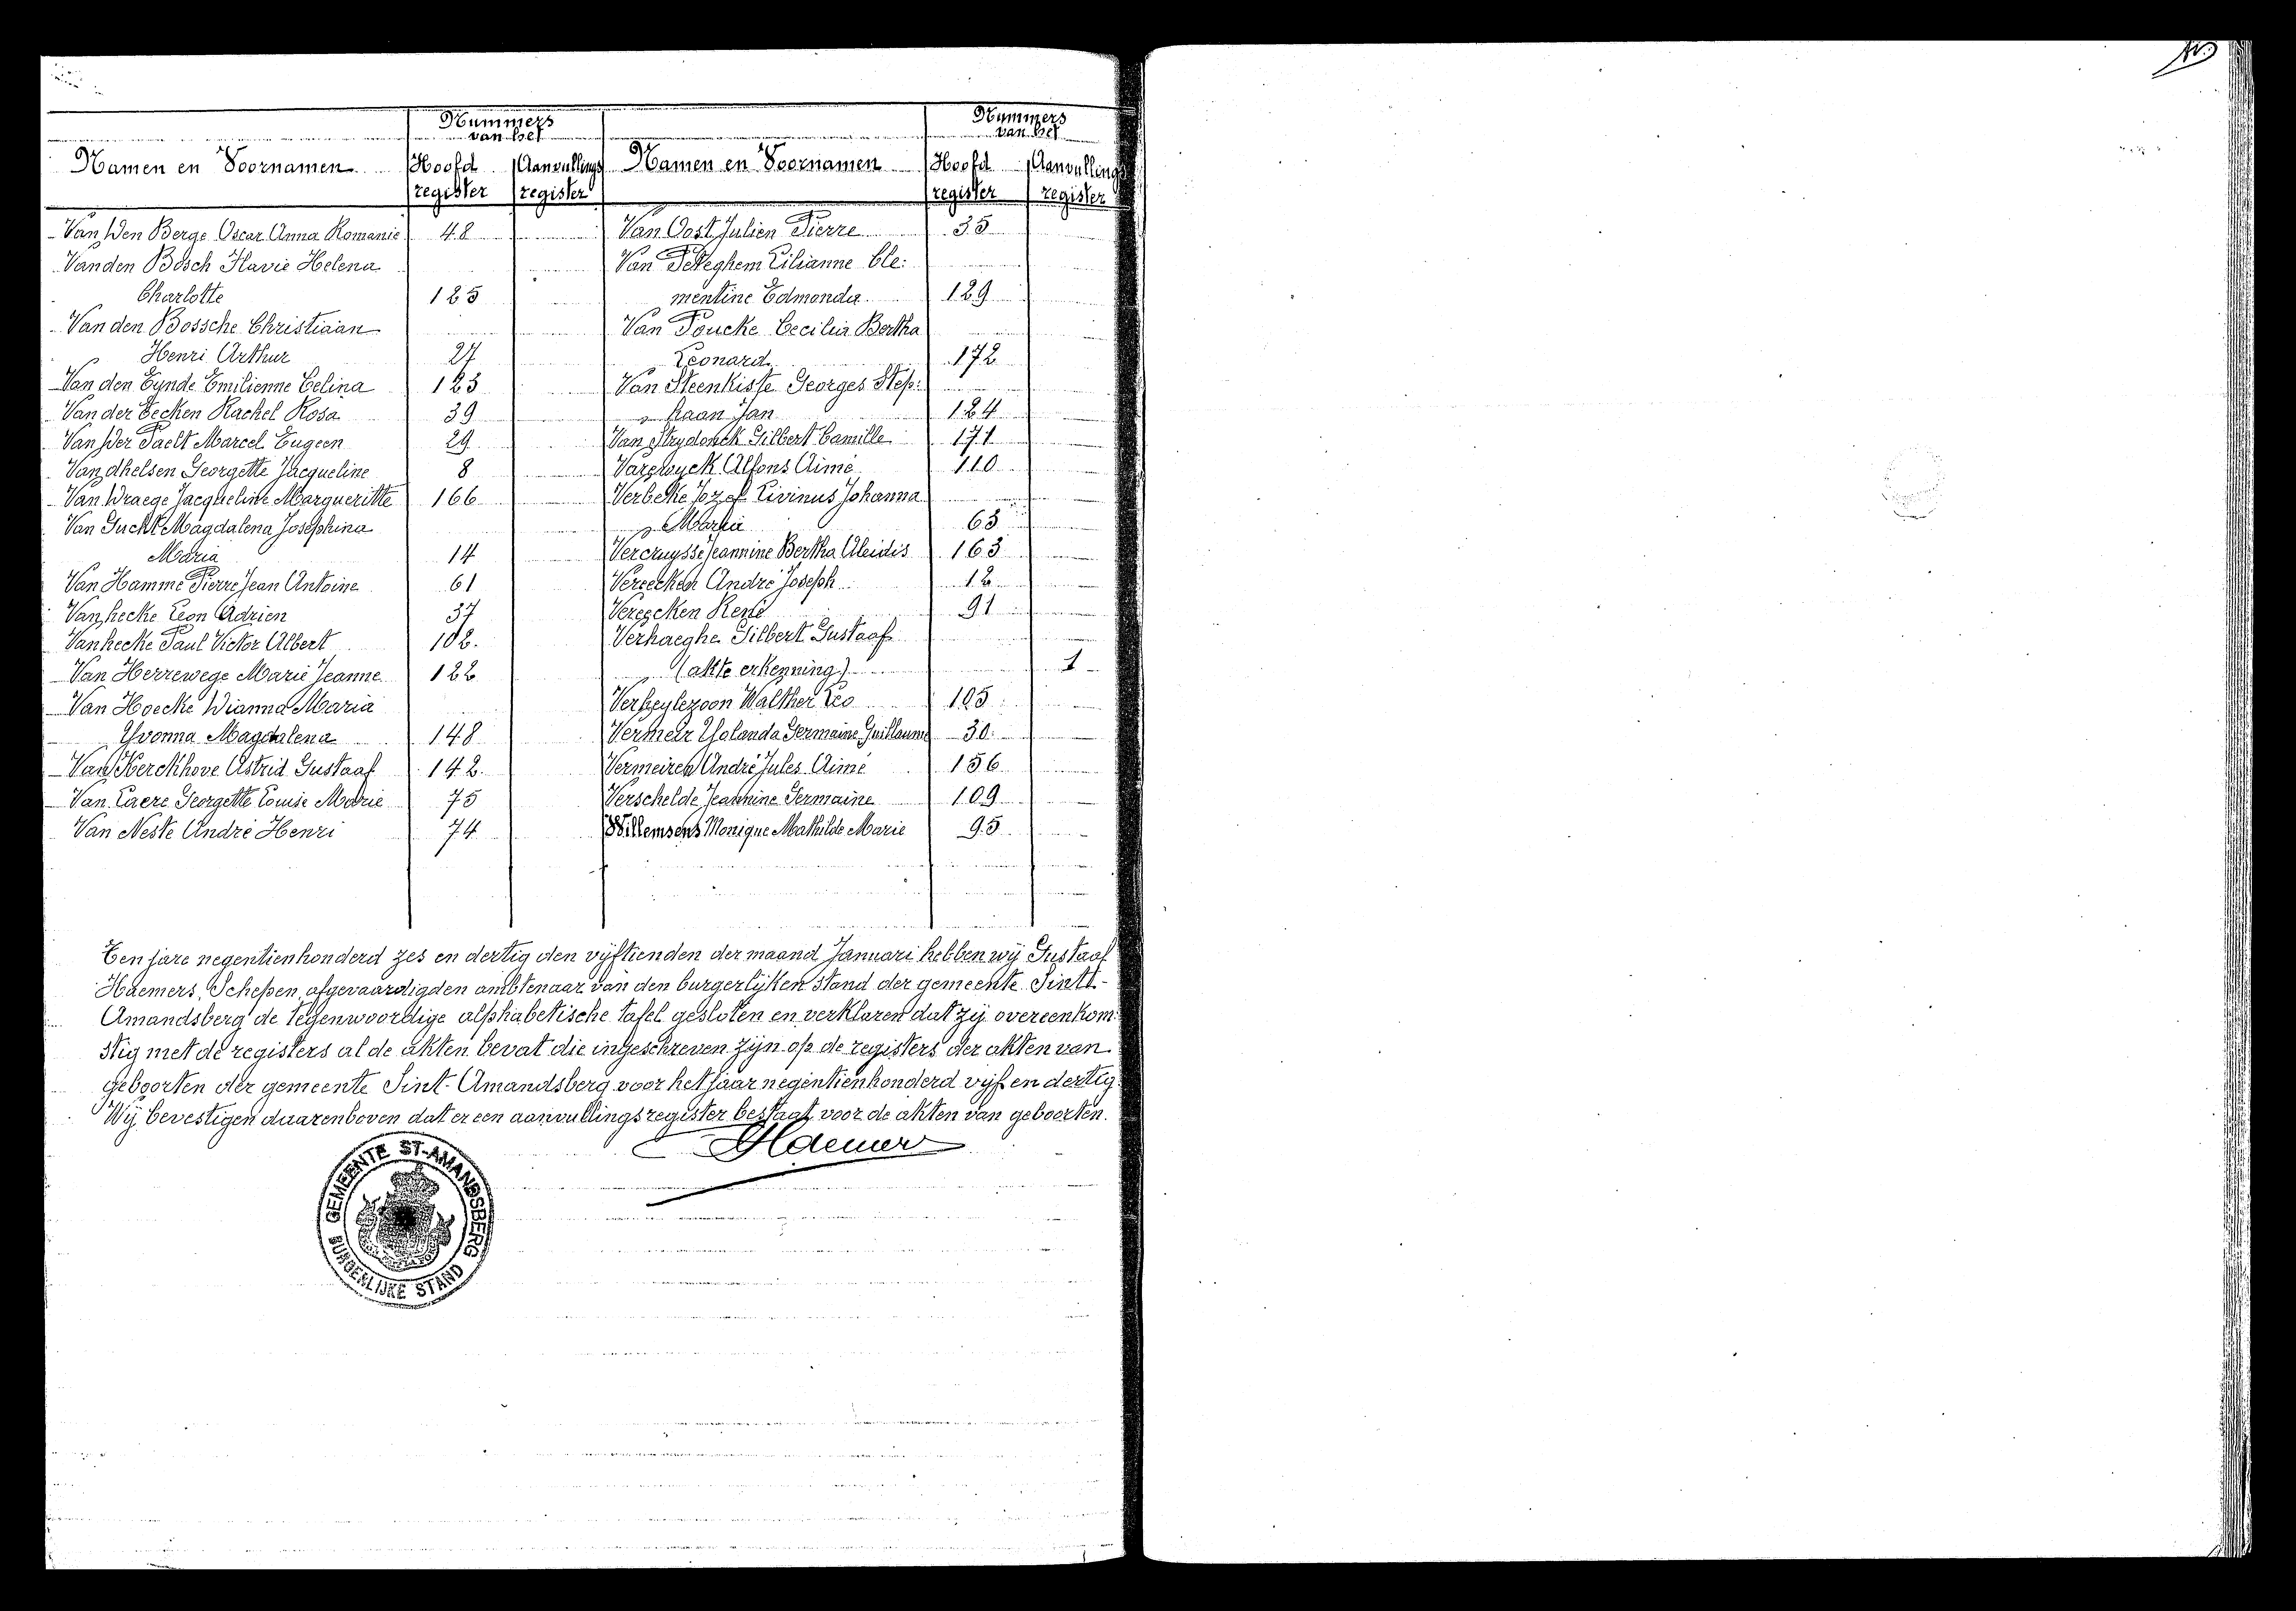 Nummers
van het
Namen en Voornamen Hoofd Aanvullings
register register
Van den Berge Oscar Anna Romanie 48
Van den Bosch Flavie Helena
Charlotte 125
Van den Bossche Christiaan
Henri Arthur 27
Van den Eynde Emilienne Celina 123
Van der Eecken Rachel Rosa 39
Van der Taelt Marcel Eugeen 29
Georgette Jacqueline 8
Van Draege Jacqueline Marguerithe 166
Van Gucht Magdalena Josephina
Maria 14
Van Hamme Pierre Jean Antoine 61
Vanhecke Leon Adrien 37
Vanhecke Paul Victor Albert 102.
Van Herrewege Marie Jeanne 122
Van Hoecke Maria
Yvonna Magdalena 148
Van Kerckhove Astrid Gustaaf 142.
Van Laere Georgette Louise Marie 75
Van Neste André Henri 74
Nummers
van het
Namen en Voornamen Hoofd Aanvullings
register register
Van Oost Julien Pierre 35
Van Peteghem Lilianne Cle:
mentine Edmonda 129
Van Poucke Cecilia Bertha
Leonard 172
Van Steenkiste Georges Step:
haan Jan 124
Van Strydonck Gilbert Camille 171
Varewyck Alfons Aimé 110
Verbeke Jozef Livinus Johanna
Maria 63
Vercruysse Jeannine Bertha Aleidis 163
Vereecken André Joseph 12
Vereecken René 91
Verhaeghe Gilbert Gustaaf
(akte erkenning) 1
Verheylezoon Walther Leo 105
Vermeir Yolanda Germaine Guillaume 30.
Vermeiren André Jules Aimé 156
Verschelde Jeannine Germaine 109
Willemsens Monique Mathilde Marie 95
Ten jare negentienhonderd zes en dertig den vijftienden der maand Januari hebben wij Gustaaf
Haemers, Schepen, afgevaardigden ambtenaar van den burgerlijken stand der gemeente Sint-
Amandsberg de tegenwoordige alphabetische tafel gesloten en verklaren dat zij overeenkom:
stig met de registers al de akten bevat die ingeschreven zijn op de registers der akten van
geboorten der gemeente Sint-Amandsberg voor het jaar negentienhonderd vijf en dertig.
Wij bevestigen daarenboven dat er een aanvullingsregister bestaat voor de akten van geboorten.
GEMEENTE ST-AMANDSBERG
BURGERLIJKE STAND